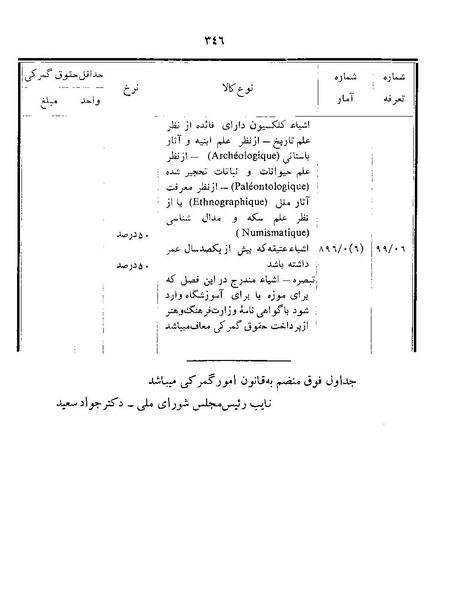 ٣٤٦
شماره شماره نوع کالا نرخ حداقل حقوق گمرکی
تعرفه آمار واحد مبلغ
اشیاء کلکسیون دارای فائده از نظر
علم تاریخ ـ ازنظر علم ابنیه و آثار
باستانی (Archéologique) ـ ازنظر
علم حیوانات و نباتات تحجیر شده
(Paléontologique) ـ از نظر معرفت
آثار ملل (Ethnographique) یا از
نظر علم سکه و مدال شناسی
(Numismatique) ٥٠درصد
٩٩/٠٦ ٨٩٦/٠(٦) اشیاء عتیقه‌که بیش از یکصدسال عمر
داشته باشد ٥٠درصد
تبصره ـ اشیاء مندرج در این فصل که
برای موزه یا برای آموزشگاه وارد
شود با گواهی نامهٔ وزارت‌فرهنگ‌وهنر
ازپرداخت حقوق گمرکی معاف‌میباشد
جداول فوق منضم به‌قانون امورگمرکی میباشد
نایب رئیس‌مجلس شورای ملی ـ دکترجواد سعید